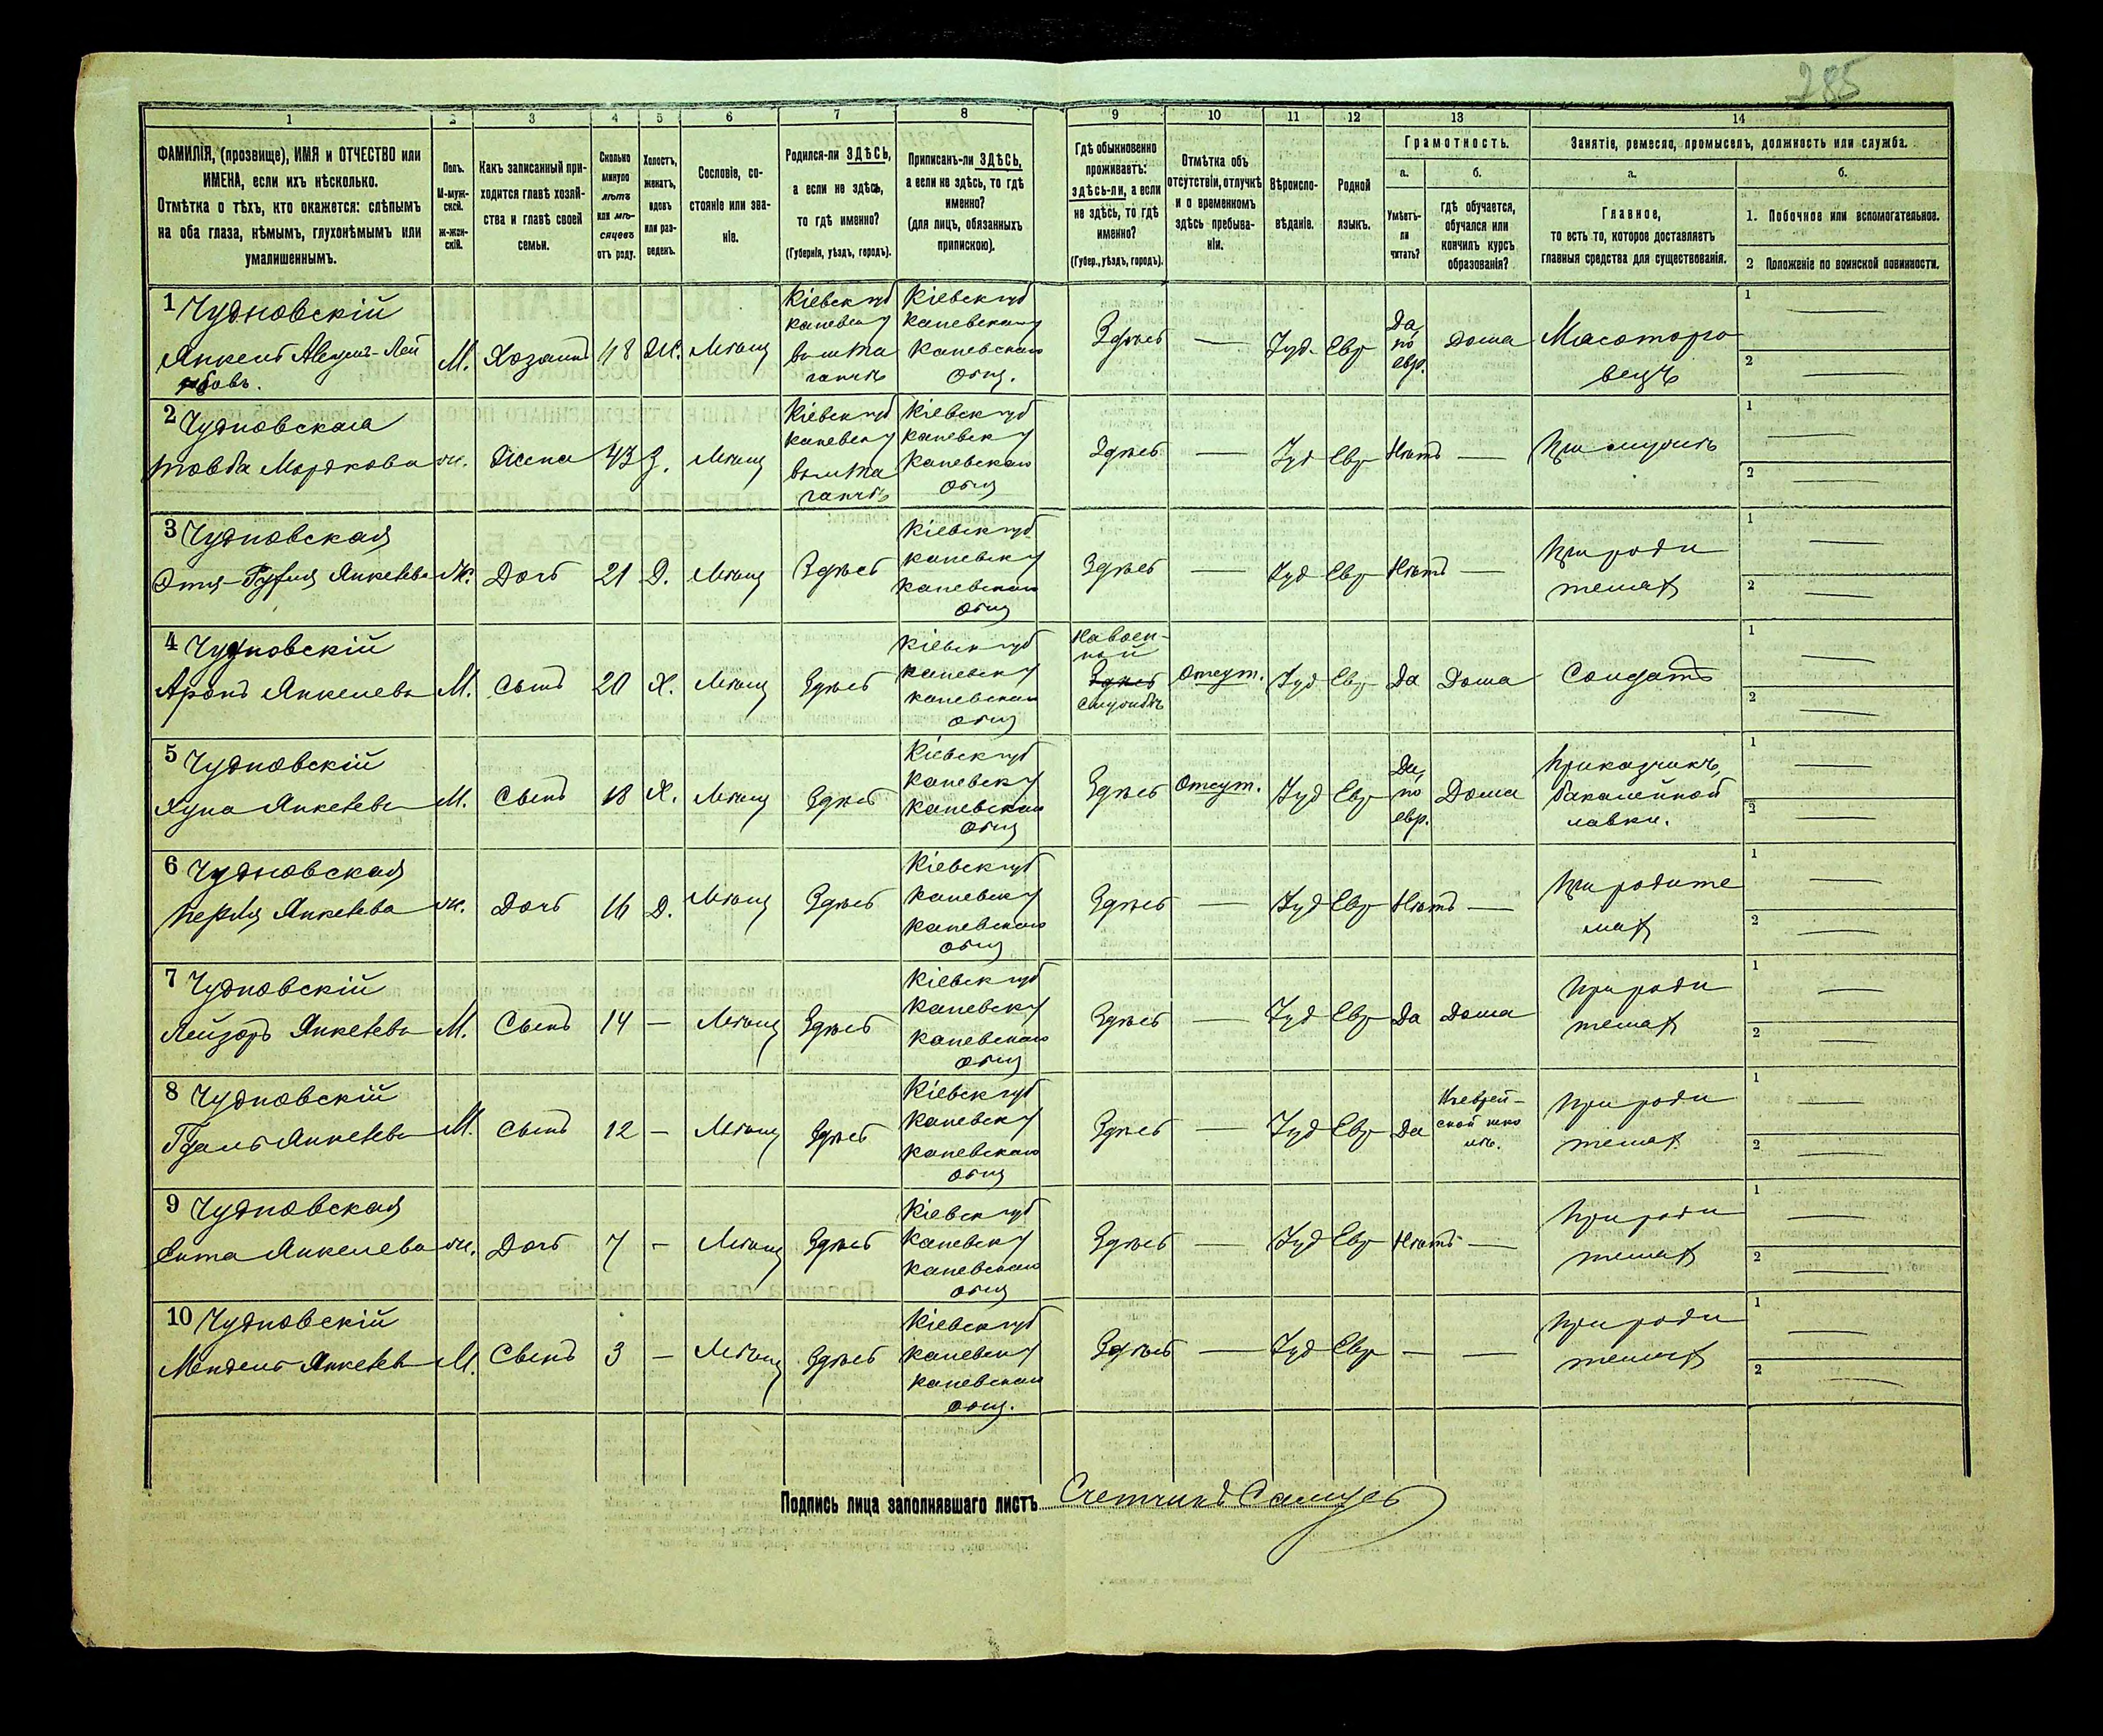 285
1
2
3
4
5
6
7
8
9
10
11
12
13
14
ФАМИЛІЯ, (прозвище), ИМЯ и ОТЧЕСТВО или
ИМЕНА, если ихъ нѣсколько.
Отмѣтка о тѣхъ, кто окажется: слѣпымъ
на оба глаза, нѣмымъ, глухонѣмымъ или
умалишеннымъ.
Полъ.
М-муж-
ской.
ж-жен-
скій.
Какъ записанный при-
ходится главѣ хозяй-
ства и главѣ своей
семьи.
Сколько
минуло
лѣтъ
или мѣ-
сяцевъ
отъ роду.
Холостъ,
женатъ,
вдовъ
или раз-
веденъ.
Сословіе, со-
стояніе или зва-
ніе.
Родился-ли ЗДѢСЬ,
а если не здѣсь,
то гдѣ именно?
(Губернія, уѣздъ, городъ).
Приписанъ-ли ЗДѢСЬ,
а если не здѣсь, то гдѣ
именно?
(для лицъ, обязанныхъ
припискою).
Гдѣ обыкновенно
проживаетъ:
здѣсь-ли, а если
не здѣсь, то гдѣ
именно?
(Губер., уѣздъ, городъ).
Отмѣтка объ
отсутствіи, отлучкѣ
и о временномъ
здѣсь пребыва-
ніи.
Вѣроиспо-
вѣданіе.
Родной
языкъ.
Грамотность.
а.
Умѣетъ-
ли
читать?
б.
гдѣ обучается,
обучался или
кончилъ курсъ
образованія?
Занятіе, ремесло, промыселъ, должность или служба.
а.
Главное,
то есть то, которое доставляетъ
главныя средства для существованія.
б.
1. Побочное или вспомогательное.
2 Положеніе по воинской повинности.
1 Чудновскій
Янкель
М. Хозяинъ 48 Ж. Мѣщ
Кіевск губ
Каневск у
Кіевск губ
Каневск у
Каневскаго
общ.
Здѣсь — Іуд. Евр
Да,
по
евр.
Дома
Мясоторго
вецъ
1 —
2 —
2 Чудновская
Товба Мордкова ж. Жена 43 З. Мѣщ
Кіевск губ
Каневск у
Кіевск губ
Каневск у
Каневскаго
общ
Здѣсь — Іуд Евр Нѣтъ — При мужѣ
1 —
2 —
3 Чудновская
Янкелева Ж. Дочь 21 Д. Мѣщ Здѣсь
Кіевск губ
Каневск у
Каневскаго
общ
Здѣсь — Іуд Евр Нѣтъ —
При роди
теляхъ
1 —
2 —
4 Чудновскій
Аронъ Янкелевъ М. Сынъ 20 Х. Мѣщ Здѣсь
Кіевск губ
Каневск у
Каневскаго
общ
На воен-
ной
Здѣсь
службѣ
Отсут. Іуд Евр Да Дома Солдатъ
1 —
2 —
5 Чудновскій
Хуна Янкелевъ М. Сынъ 18 Х. Мѣщ Здѣсь
Кіевск губ
Каневск у
Каневскаго
общ
Здѣсь Отсут. Іуд Евр
Да,
по
евр.
Дома
Приказчикъ,
бакалейной
лавки.
1 —
2 —
6 Чудновская
Перля Янкелева ж. Дочь 16 Д. Мѣщ Здѣсь
Кіевск губ
Каневск у
Каневскаго
общ
Здѣсь — Іуд Евр Нѣтъ —
При родите
ляхъ
1 —
2 —
7 Чудновскій
Лейзоръ Янкелевъ М. Сынъ 14 — Мѣщ Здѣсь
Кіевск губ
Каневск у
Каневскаго
общ
Здѣсь — Іуд Евр Да Дома
При роди
теляхъ
1 —
2 —
8 Чудновскій
Гдаль Янкелевъ М. Сынъ 12 — Мѣщ Здѣсь
Кіевск губ
Каневск у
Каневскаго
общ
Здѣсь — Іуд Евр Да
Въ еврей-
ской шко
лѣ.
При роди
теляхъ
1 —
2 —
9 Чудновская
Ента Янкелева ж. Дочь 7 — Мѣщ Здѣсь
Кіевск губ
Каневск у
Каневскаго
общ
Здѣсь — Іуд Евр Нѣтъ —
При роди
теляхъ
1 —
2 —
10 Чудновскій
Мендель Янкелев М. Сынъ 3 — Мѣщ Здѣсь
Кіевск губ
Каневск у
Каневскаго
общ.
Здѣсь — Іуд Евр — —
При роди
теляхъ
1 —
2 —
Подпись лица заполнявшаго листъ Счетчикъ